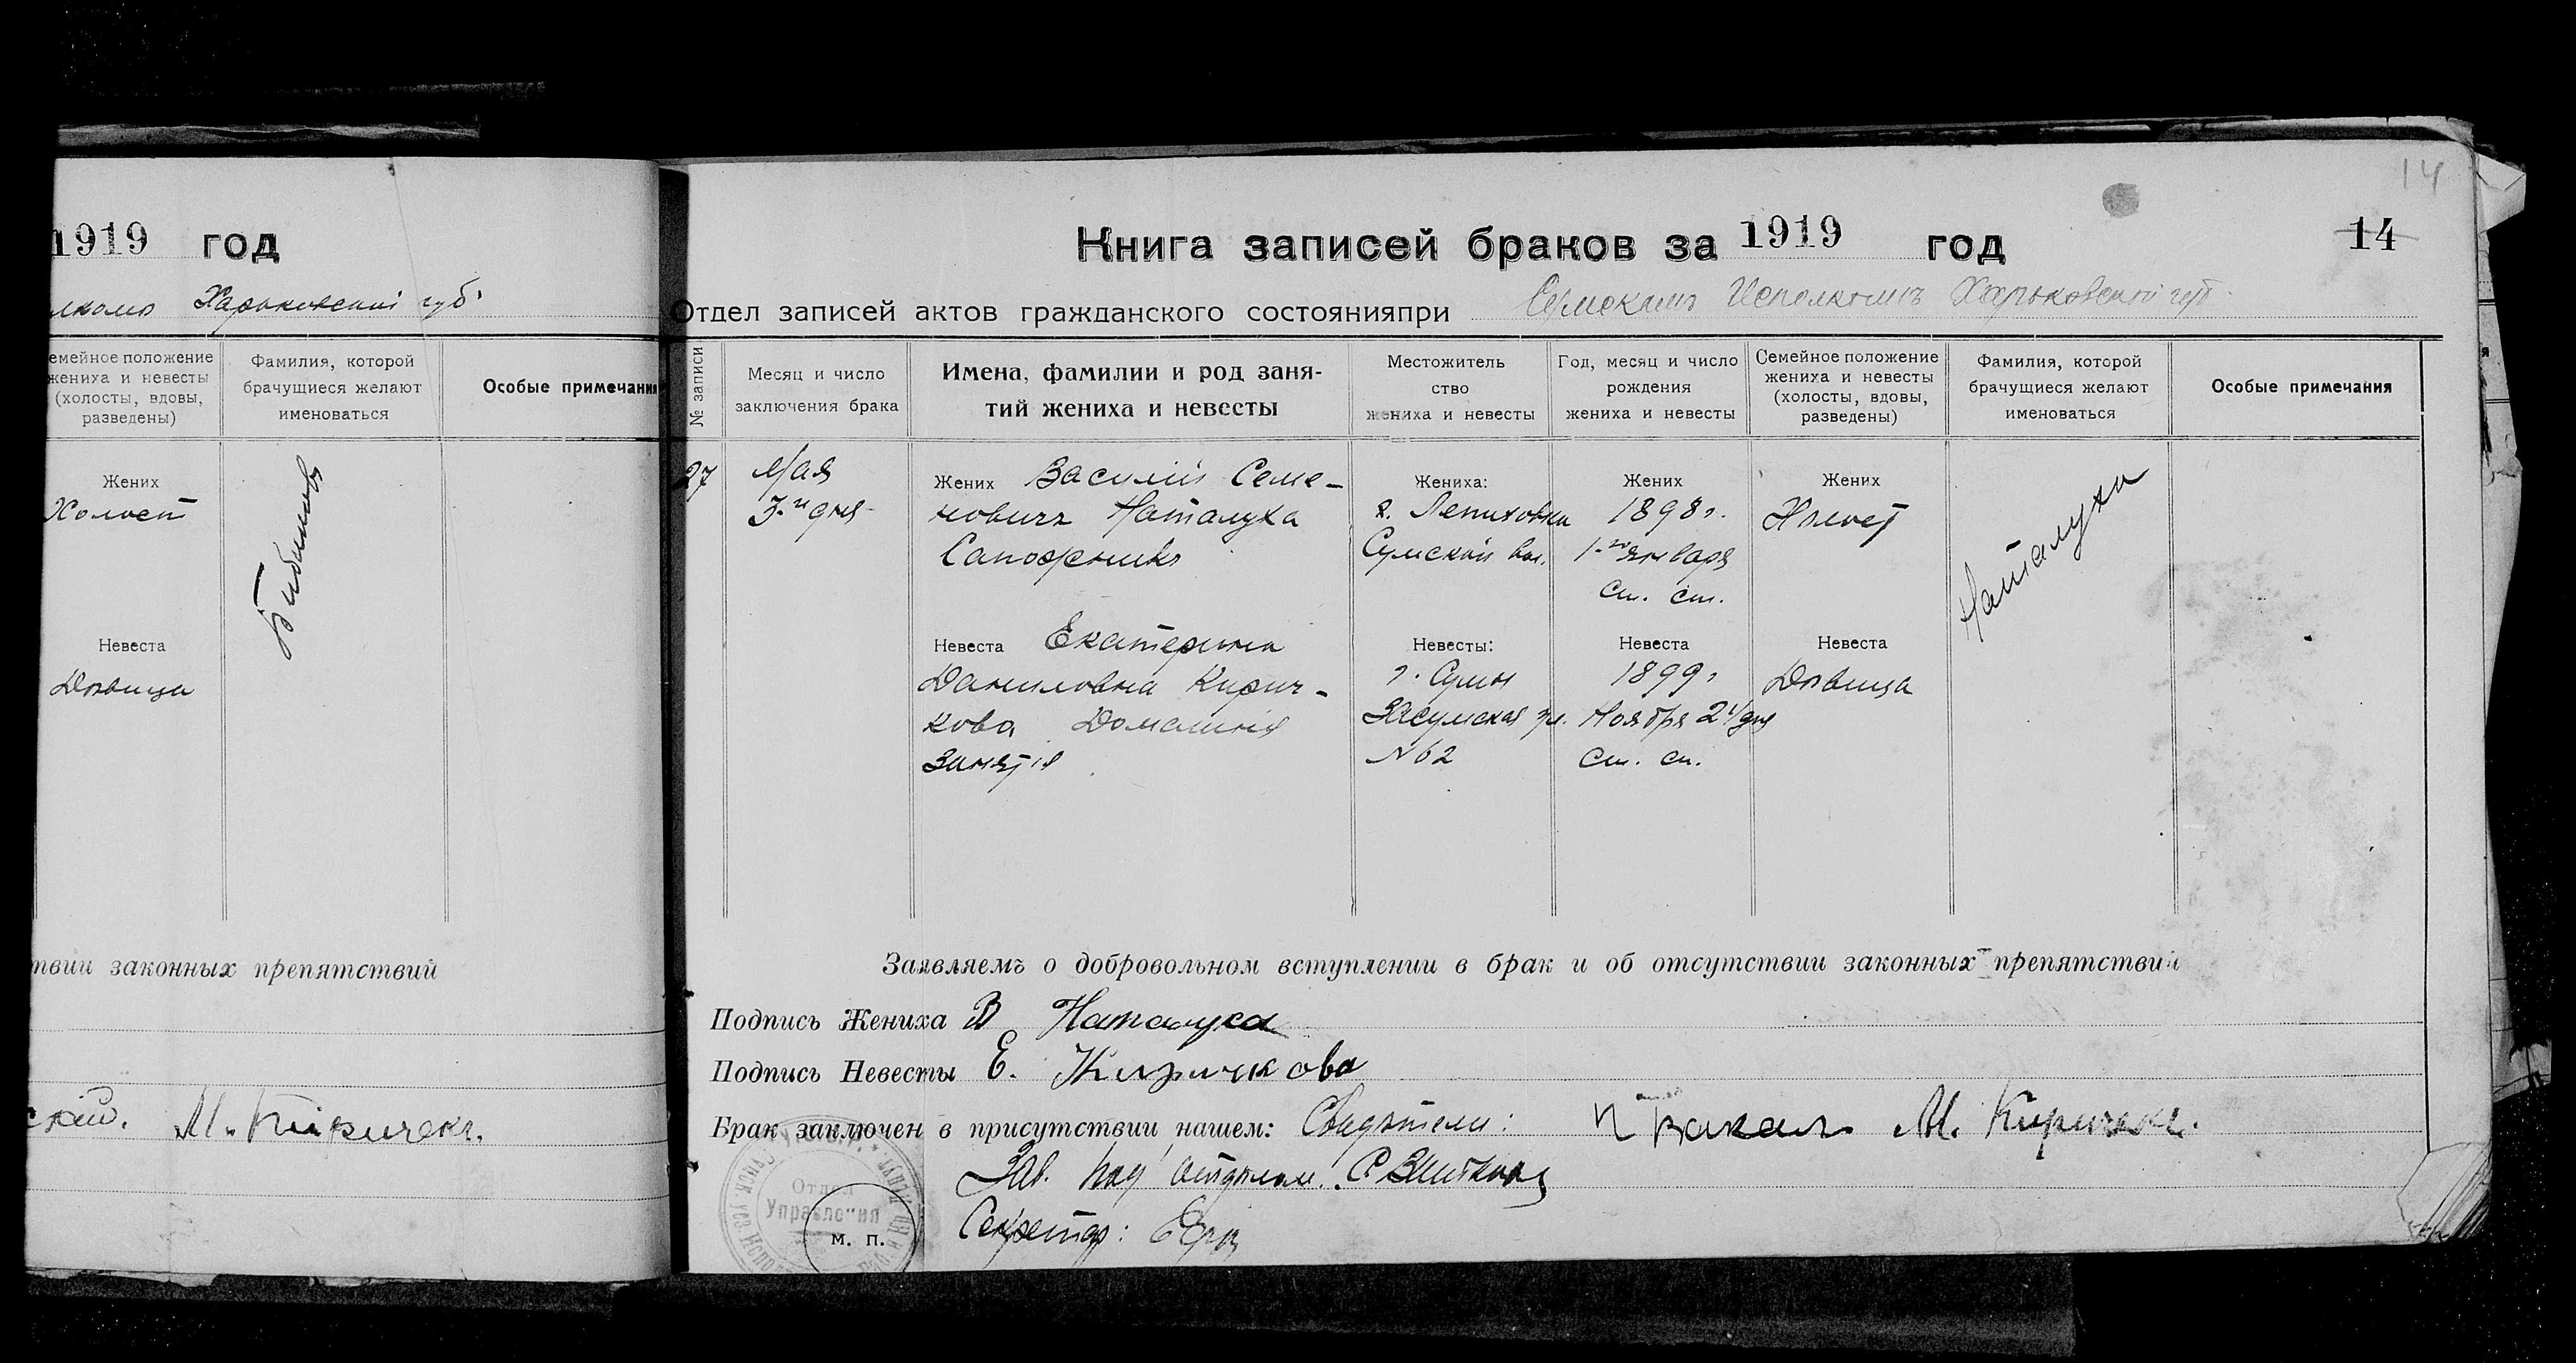 1919 год
Харьковской губ.
Семейное положение
жениха и невесты
(холосты, вдовы,
разведены)
Фамилия, которой
брачущиеся желают
именоваться
Особые примечания
Жених
Холост
Невеста
Дѣвица
ствии законных препятствий
М. Киричекъ.
14
Книга записей браков за 1919 год
14
Отдел записей актов гражданского состоянияпри Сумскамъ Исполкомъ Харьковской губ.
№ записи
Месяц и число
заключения брака
Имена, фамилии и род заня-
тий жениха и невесты
Местожитель
ство
жениха и невесты
Год, месяц и число
рождения
жениха и невесты
Семейное положение
жениха и невесты
(холосты, вдовы,
разведены)
Фамилия, которой
брачущиеся желают
именоваться
Особые примечания
27
Мая
3-го дня
Жених Василій Семе-
новичъ Наталуха
Сапожникъ
Жениха:
Сумской вол.
Жених
1898 г.
1-го января
ст. ст.
Жених
Холост
Наталуха
Невеста Екатерина
Даниловна Кирич-
кова Домашнія
занятія
Невесты:
г. Сумы
Засумская ул.
№62
Невеста
1899 г
Ноября 24 дня
ст. ст.
Невеста
Дѣвица
Заявляемъ о добровольном вступлении в брак и об отсутствии законных препятствий
Подпись Жениха В Наталуха
Подпись Невесты Е. Киричкова
Брак заключен в присутствии нашем: Свидѣтели: М. Киричекъ.
Зав. под отдѣлом:
Секретар:
Отдел
Управления
м. п.